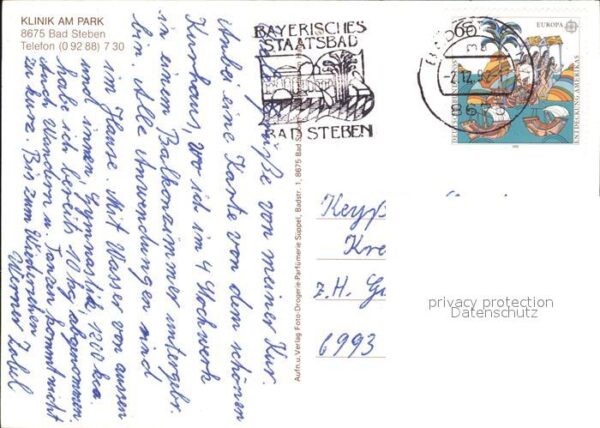 KLINIK AM PARK
8675 Bad Steben
Telefon (0 92 88) 7 30
Grüße von meiner Kur.
Anbei eine Karte von dem schönen
Kurhaus, wo ich im 4 Stockwerk
in einem Balkonzimmer untergebr.
bin. Alle Anwendungen sind
im Hause. Mit Wasser von aussen
und innen, Gymnastik, 1200 kca.
habe ich bereits 10 kg abgenommen.
Auch Wandern u. Tanzen kommt nicht
zu kurz. Bis zum Wiedersehen
Werner Zabel
Aufn.u.Verlag Foto-Drogerie-Parfümerie Süppel, Badstr. 1, 8675 Bad
BAYERISCHES
STAATSBAD
BAD STEBEN
8675
EUROPA
60
ENTDECKUNG AMERIKAS
Kre
z.H. G
6993
privacy protection
Datenschutz